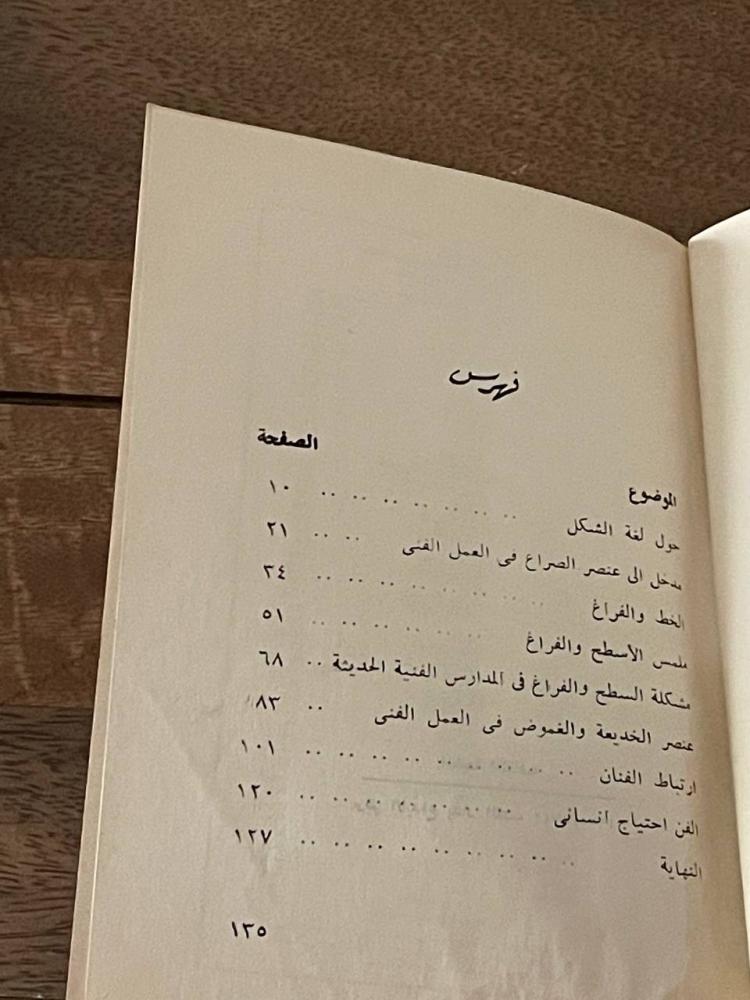 فهرس
الموضوع الصفحة
حول لغة الشكل .. .. .. .. .. .. .. ١٠
مدخل الى عنصر الصراع فى العمل الفنى .. .. ٢١
الخط والفراغ .. .. .. .. .. .. .. .. ٣٤
ملمس الأسطح والفراغ .. .. .. .. .. .. ٥١
مشكلة السطح والفراغ فى المدارس الفنية الحديثة .. ٦٨
عنصر الخديعة والغموض فى العمل الفنى .. ٨٣
ارتباط الفنان .. .. .. .. .. .. .. .. .. ١٠١
الفن احتياج انسانى .. .. .. .. .. .. .. ١٢٠
النهاية .. .. .. .. .. .. .. .. .. ١٢٧
١٣٥